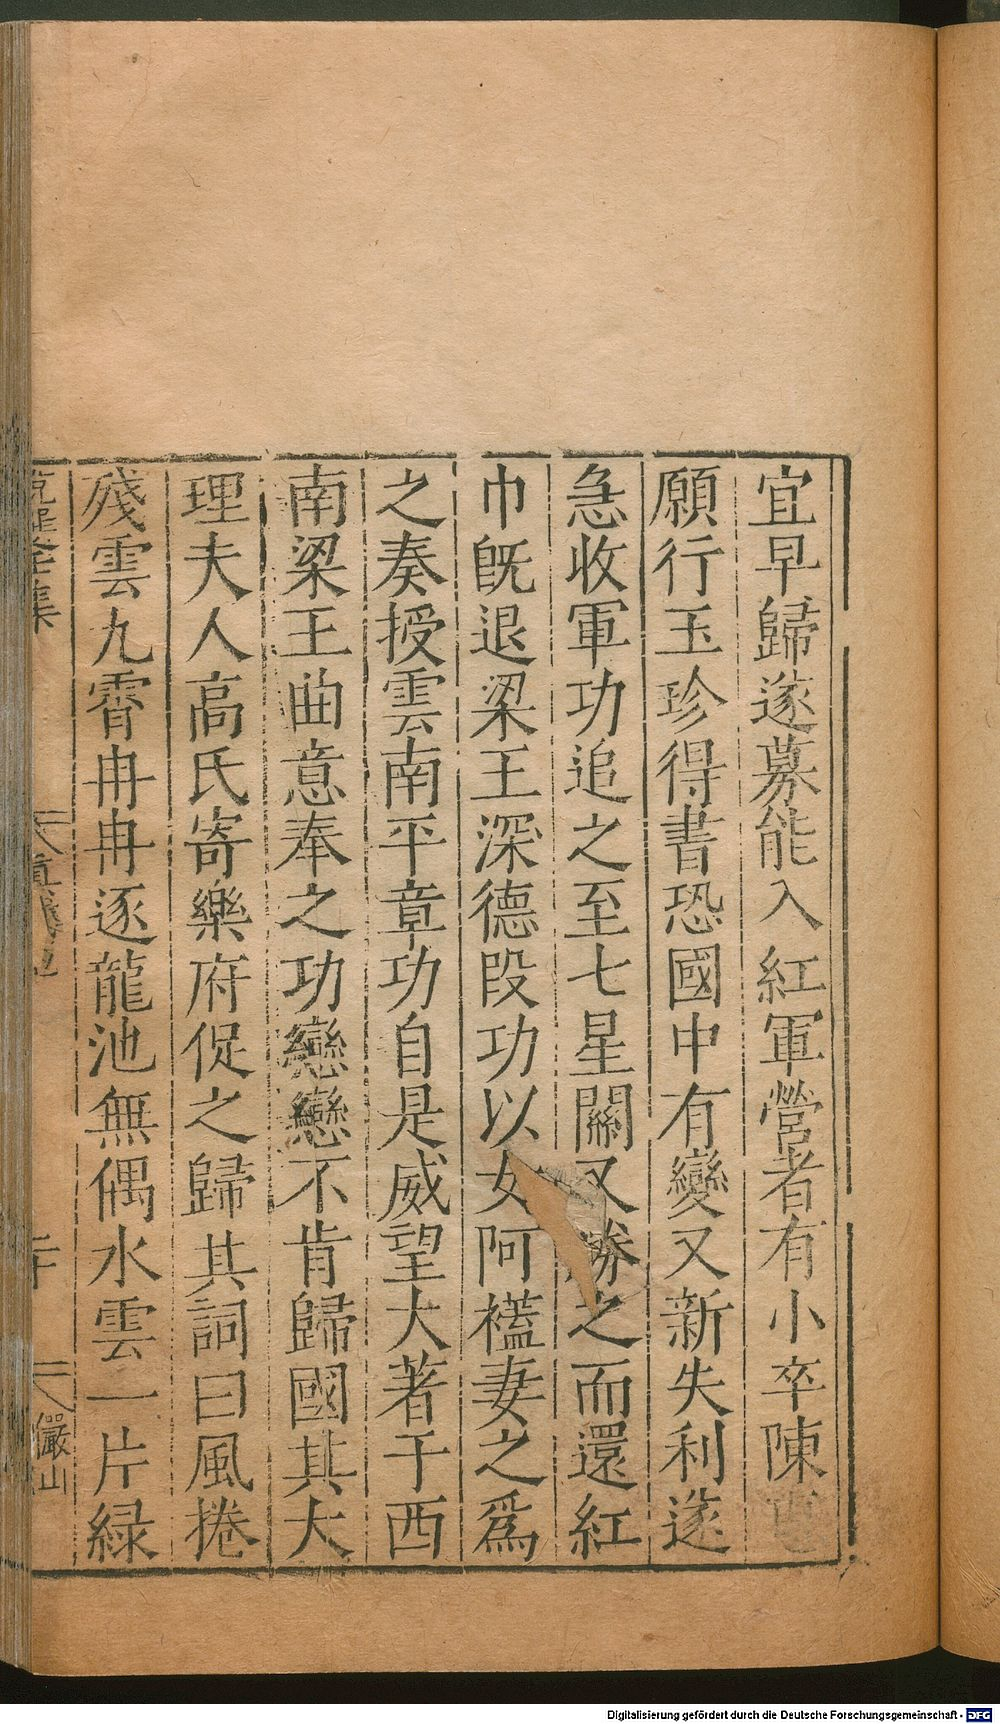 宜早歸遂募能入紅軍營者有小卒陳
願行玉珍得書恐國中有變又新失利遂
急收軍功追之至七星關又勝之而還紅
巾旣退梁王深德段功以女阿𧝧妻之爲
之奏授雲南平章功自是威望大著于西
南梁王曲意奉之功戀戀不肯歸國其大
理夫人高氏寄樂府促之歸其詞曰風捲
殘雲九霄冉冉逐龍池無偶水雲一片緑
集
二十
儼山
Digitalisierung gefördert durch die Deutsche Forschungsgemeinschaft - DFG